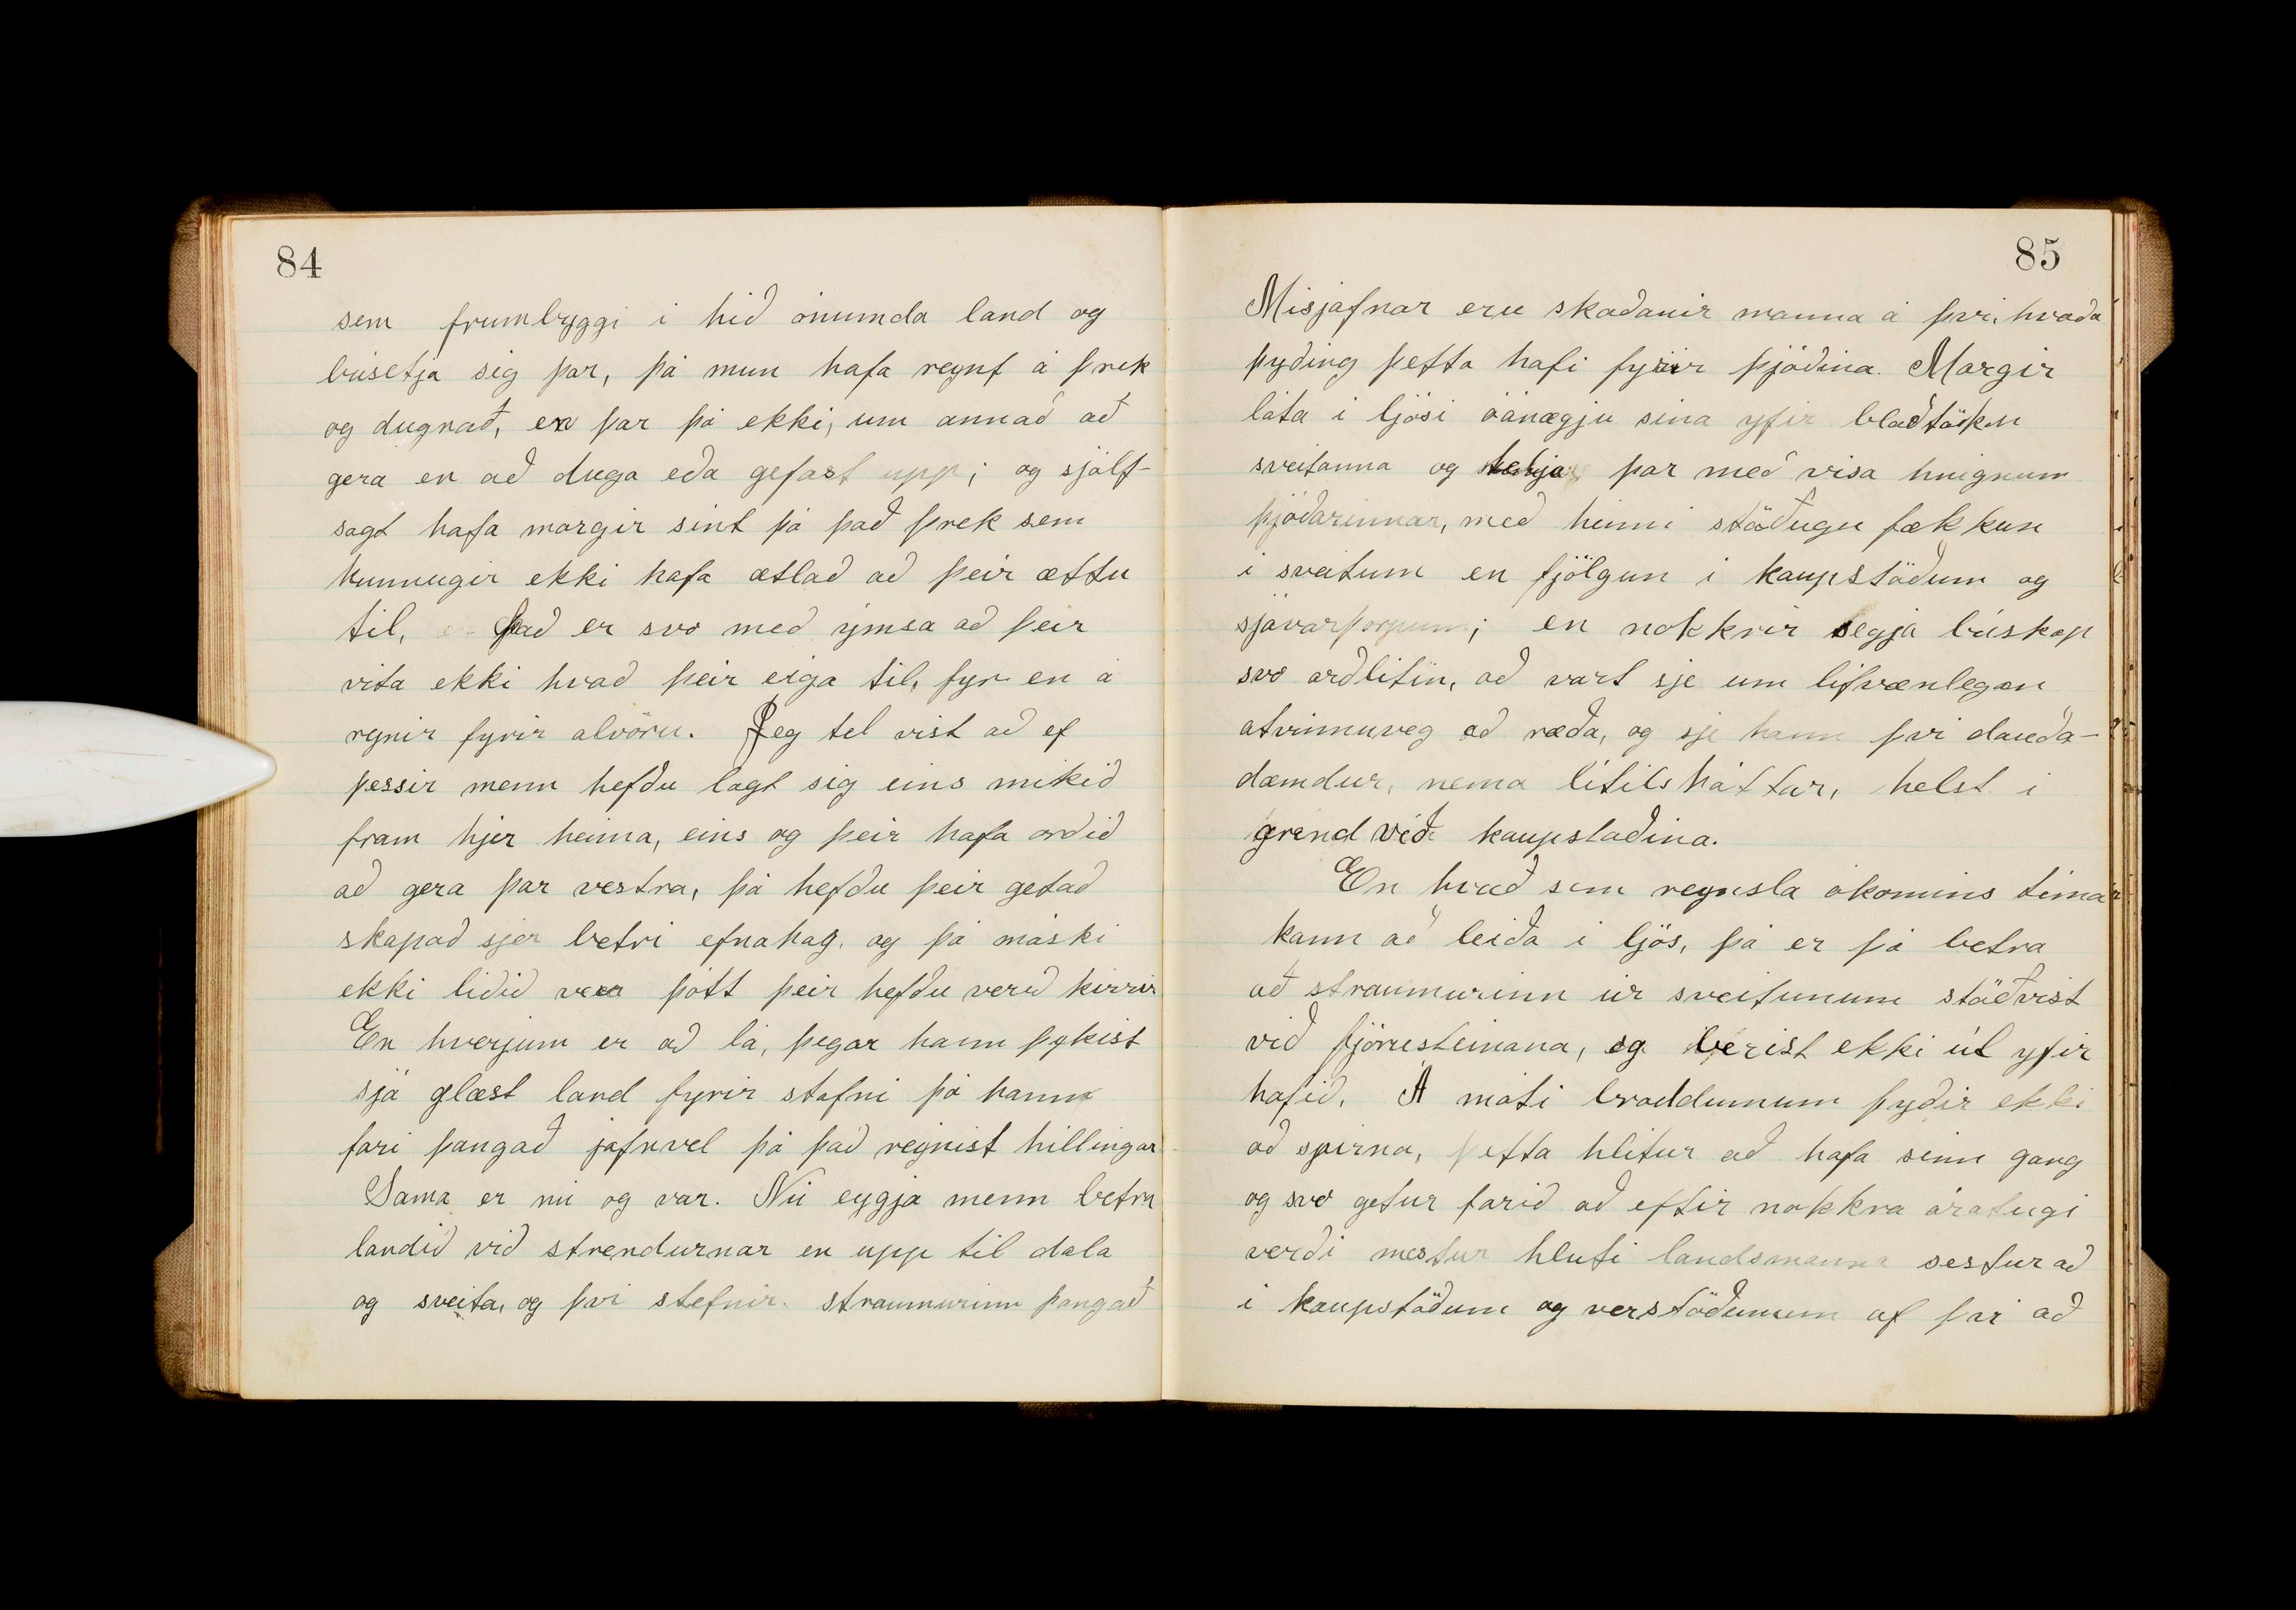 84
sem frumbyggi i hið ónumda land og
búsetja sig þar, þá mun hafa reynt á þrek
og dugnað, en þar þá ekki, um annað að
gera en að duga eða gefast upp; og sjálf-
sagt hafa margir sint þá það þrek sem
kunnugir ekki hafa ætlað að þeir ættu
til, það er svo með ýmsa að þeir
vita ekki hvað þeir eiga til, fyr en á
reynir fyrir alvöru. Jeg tel vist að ef
þessir menn hefðu lagt sig eins mikið
fram hjer heima, eins og þeir hafa orðið
að gera þar vestra, þá hefðu þeir getað
skapað sjer betri efnahag, og þá máski
ekki liðið ver þótt þeir hefðu verið kirrir
En hverjum er að lá, þegar hann þykist
sjá glæst land fyrir stafni þó hann
fari þangað jafnvel þó það reynist hillingar
Sama er nú og var. Nú eygja menn betra
landið við strendurnar en upp til dala
og sveita, og þvi stefnir straumurinn þangað
85
Misjafnar eru skoðanir manna á þvi, hvaða
þyðing þetta hafi fyrir þjóðina. Margir
láta i ljósi óánægju sina yfir blóðtöku
sveitanna og telja þar með visa hnignun
þjóðarinnar, með hinni stöðugu fækkun
i sveitum en fjölgun i kaupstöðum og
sjávarþorpum; en nokkrir segja búskap
svo arðlitin, að vart sje um lifvænlegan
atvinnuveg að ræða, og sje hann þvi dauða-
dæmdur, nema lítilsháttar, helst i
grend við kaupstaðina.
En hvað sem reynsla ókomins tima
kann að leiða i ljós, þá er þó betra
að straumurinn úr sveitunum stöðvist
við fjörusteinana, og berist ekki út yfir
hafið. Á móti broddunum þyðir ekki
að spirna, þetta hlitur að hafa sinn gang
og svo getur farið að eftir nokkra áratugi
verði mestur hluti landsmanna sestur að
i kaupstöðum og verstöðunum af þvi að